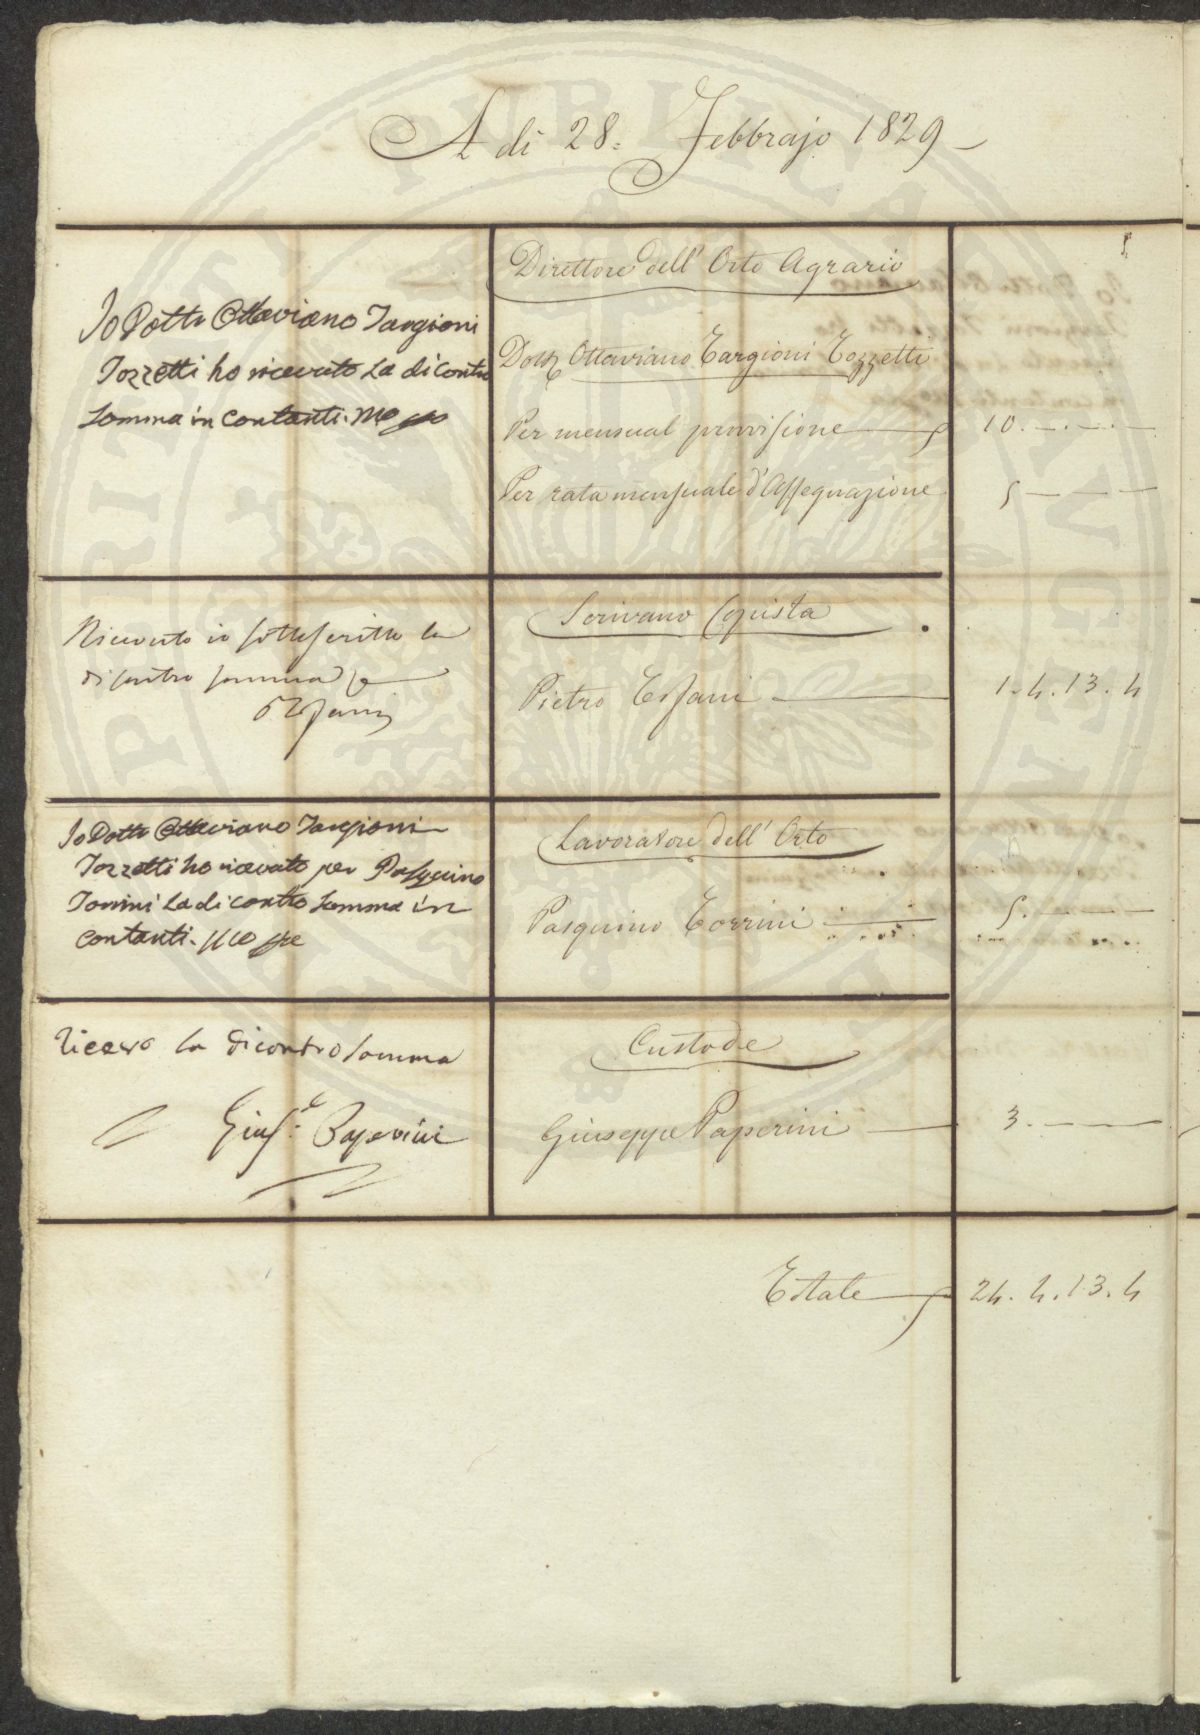 A di 28. Febbrajo 1829
Io Dottr Ottaviano Targioni
Tozzetti ho ricevuto La di contro
Somma in Contanti. Mo
Direttore dell' Orto Agrario
Dott Ottaviano Targioni Tozzetti
Per mensual provisione
10. — . — . —
Per rata mensuale d'Assegnazione
5 — — —
Ricevuto io sottoscritto la
di contro somma
Scrivano Copista
Pietro
1. 4. 13. 4
Io Dottr Ottaviano Targioni
Tozzetti ho ricevuto per Pasquino
Torrini La di contro Somma in
Contanti.
Lavoratore dell' Orto
Pasquino Torrini
5. — — —
Ricevo la dicontro somma
Gius.e Paperini
Custode
Giuseppe Paperini
3. — — —
Totale
24. 4. 13. 4